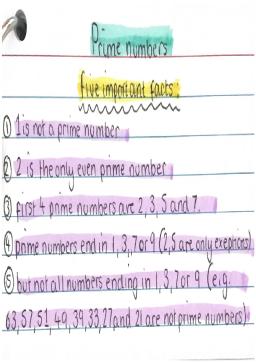 Prime numbers
five important facts:
① 1 is not a prime number
② 2 is the only even prime number
③ first 4 prime numbers are 2, 3, 5 and 7.
④ prime numbers end in 1, 3, 7 or 9 (2,5 are only exeptions)
⑤ but not all numbers ending in 1, 3, 7 or 9 (e.g.
63, 57, 51, 49, 39, 33, 27 and 21 are not prime numbers)